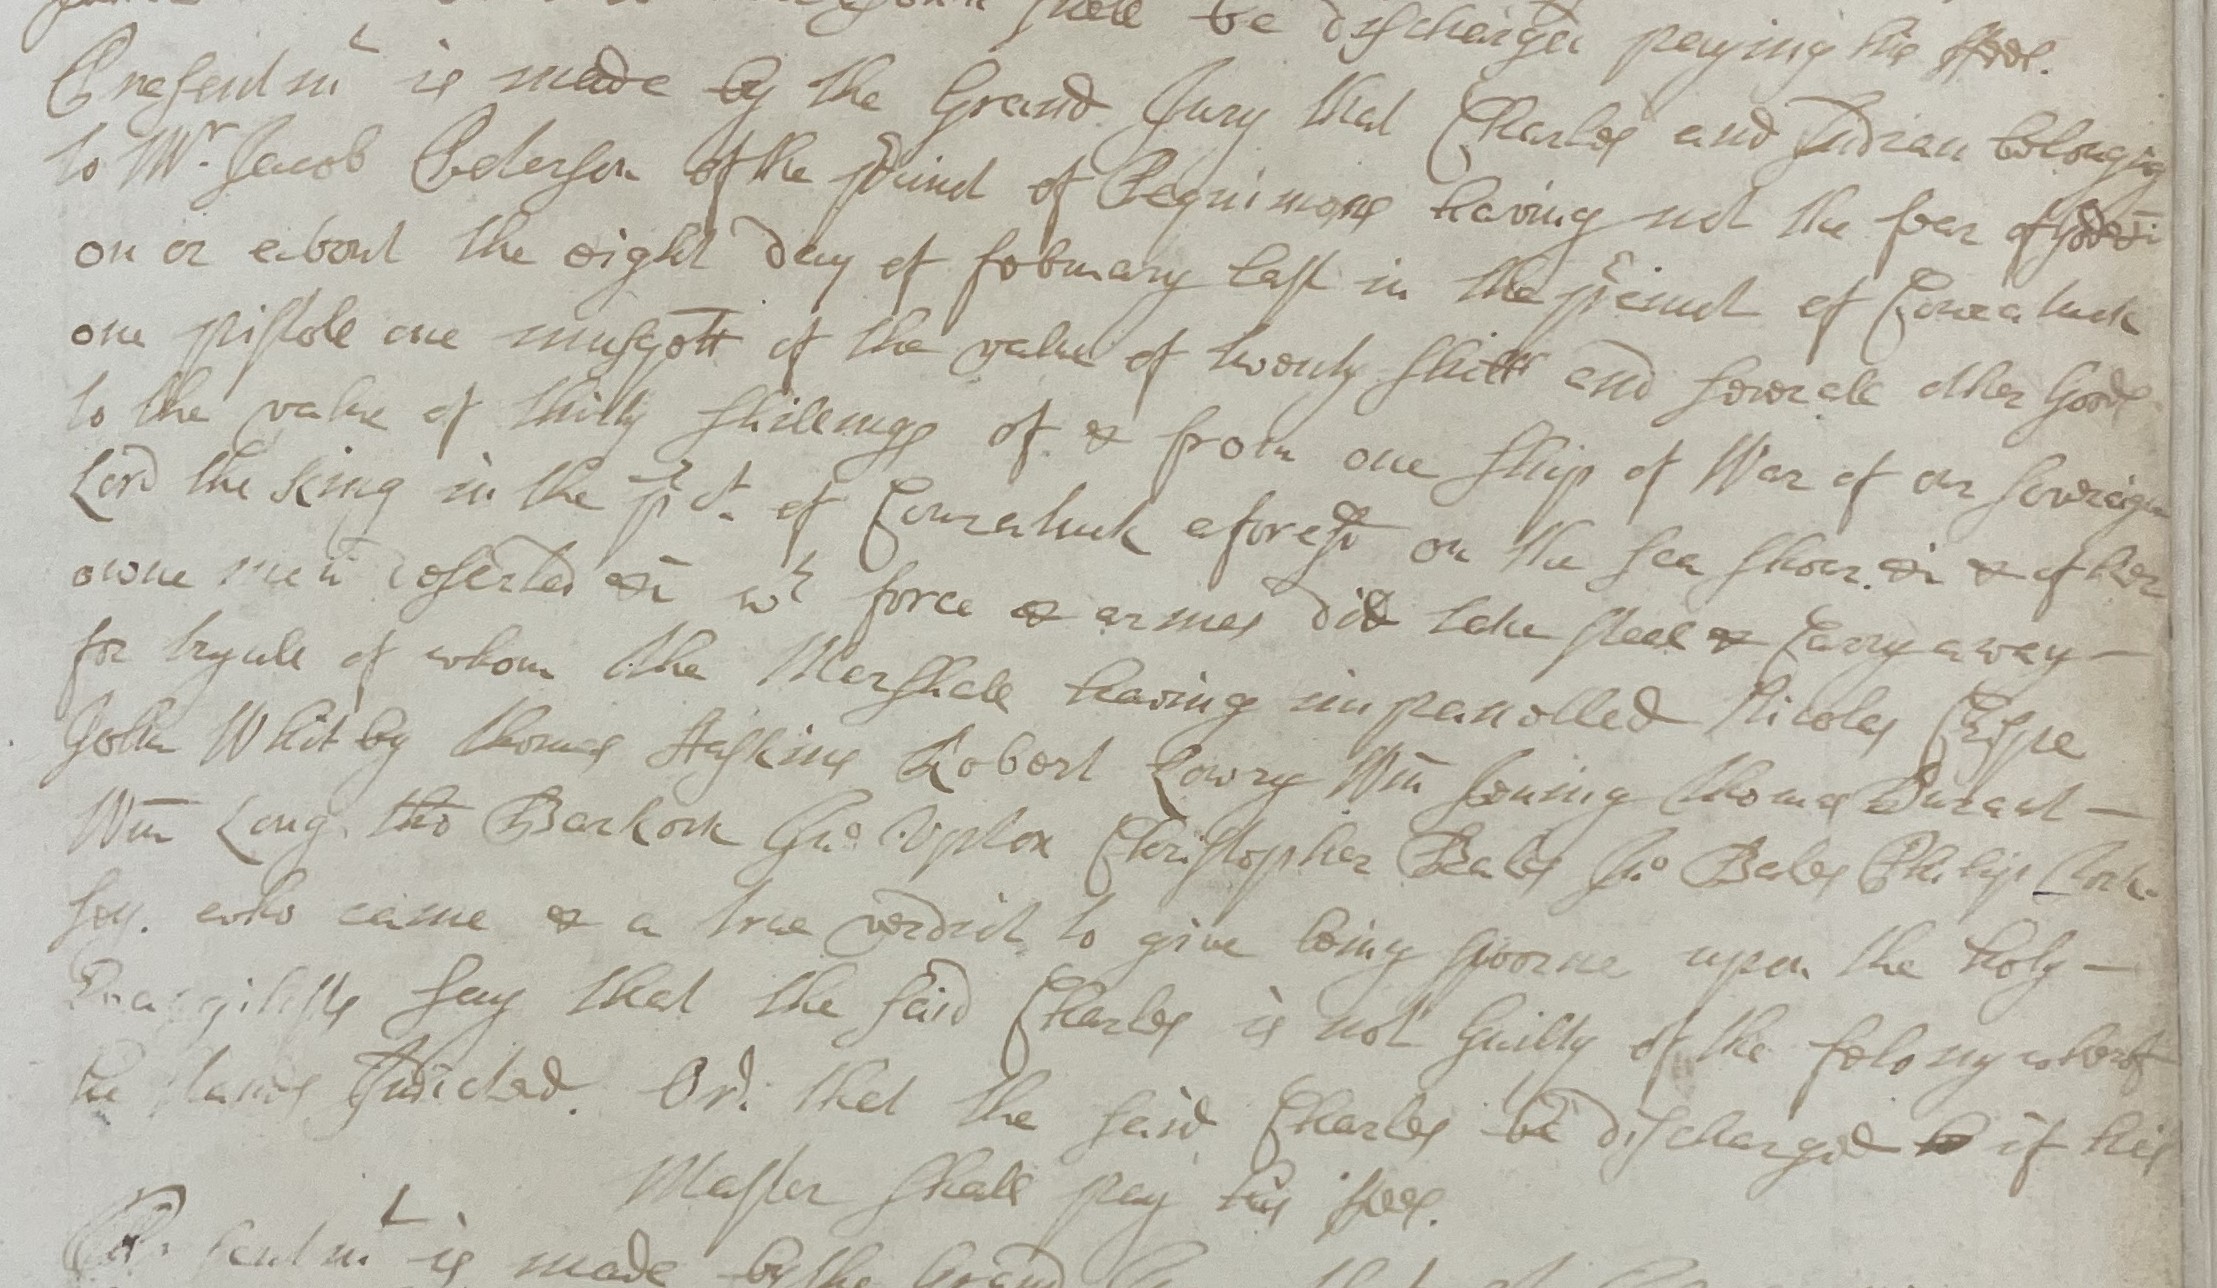 shall be discharged paying his fees.
Presentmt is made by the Grand Jury that Charles and Indian belonging
to Mr. Jacob Peterson of the p'cinct of Pequimons having not the fear of God &c
on or about the eight day of February last in the p'cinct of Couratuck
one pistole one musgott of the value of twenty shills and severall other Goods
to the value of thirty shillings of & from one ship of War of our Soveraigne
Lord the King in the p'ct. of Couratuck aforesd on the sea shoar & of her
owne men deserted wt force & armes did take steal & Carry away —
for tryall of whom the Marshall having impanolled Nicolas Crispe
John Whitby thomas Haskins Robert Lowry Wm Thomas Durant —
Wm Long tho Jno Christopher Jno Philip
sey. who came & a true verdict to give being sworne upon the holy —
say that the said Charles is not Guilty of the felony whereof
he stands Indicted. Ord. that the said Charles be discharged if his
Master shall pay his fees.
is made by the Grand